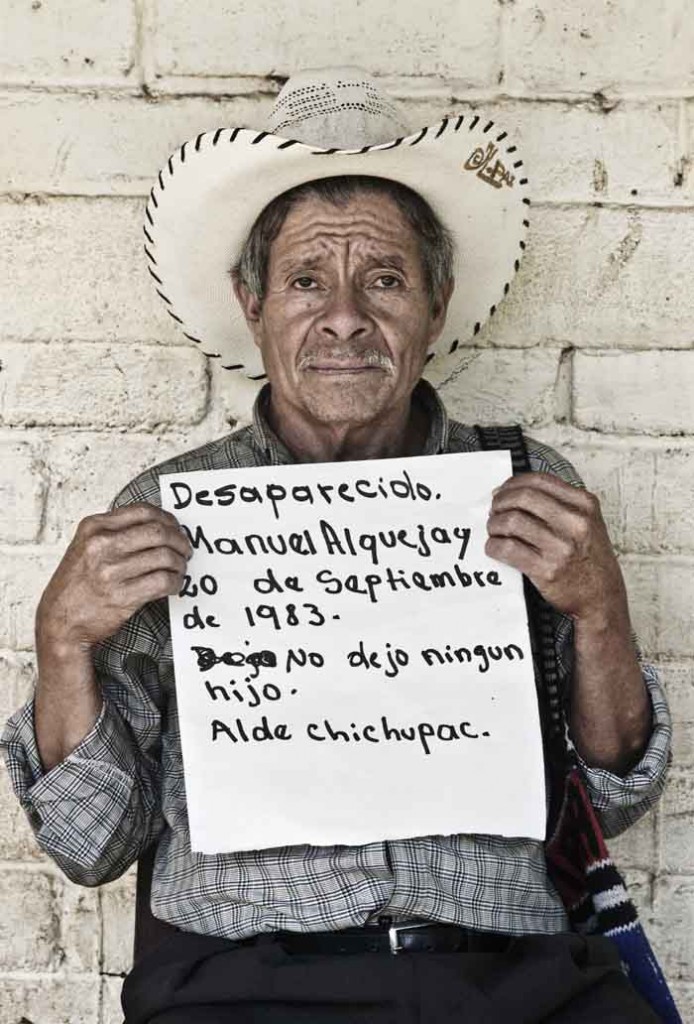 Desaparecido.
Manuel Alquejay
20 de Septiembre
de 1983.
No dejo ningun
hijo.
Alde chichupac.